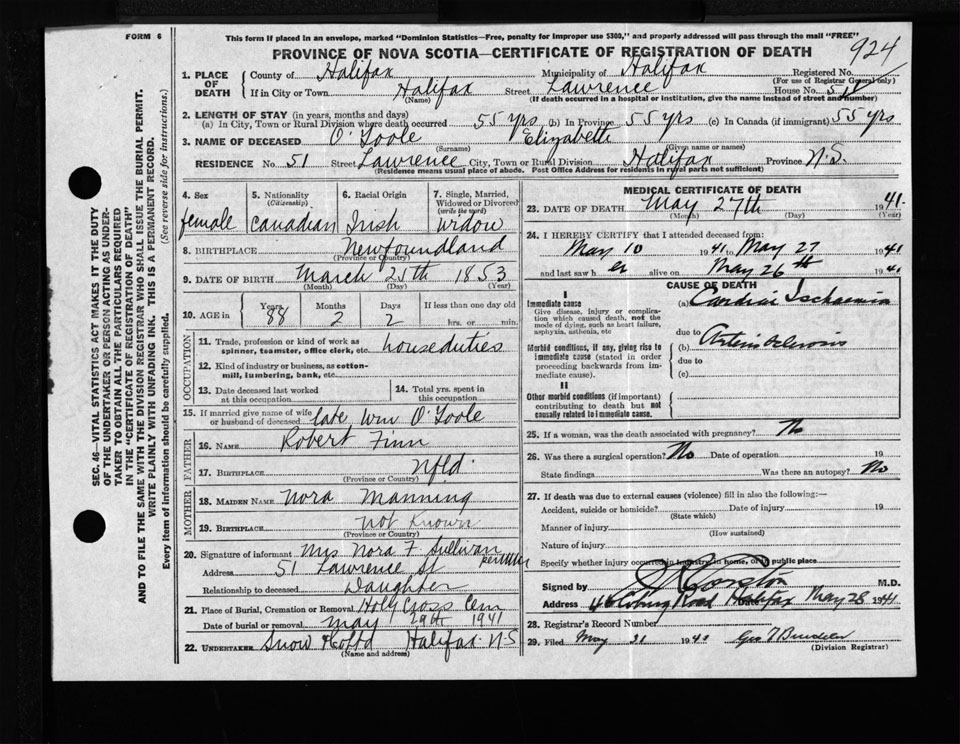 FORM 6
This form if placed in an envelope, marked "Dominion Statistics—Free, penalty for improper use $300," and properly addressed will pass through the mail "FREE"
PROVINCE OF NOVA SCOTIA—CERTIFICATE OF REGISTRATION OF DEATH
924
1. PLACE OF DEATH County of Halifax Municipality of Halifax Registered No. (For use of Registrar General only)
If in City or Town Halifax (Name) Street Lawrence House No. 51
(If death occurred in a hospital or institution, give the name instead of street and number)
2. LENGTH OF STAY (in years, months and days)
(a) In City, Town or Rural Division where death occurred 55 yrs (b) In Province 55 yrs (c) In Canada (if immigrant) 55 yrs
3. NAME OF DECEASED O'Toole Elizabeth
(Surname) (Given name or names)
RESIDENCE No. 51 Street Lawrence City, Town or Rural Division Halifax Province N.S.
(Residence means usual place of abode. Post Office Address for residents in rural parts not sufficient)
4. Sex female
5. Nationality (Citizenship) Canadian
6. Racial Origin Irish
7. Single, Married, Widowed or Divorced (write the word) widow
8. BIRTHPLACE Newfoundland
(Province or Country)
9. DATE OF BIRTH March 25th 1853
(Month) (Day) (Year)
10. AGE in Years 88 Months 2 Days 2 If less than one day old hrs. or min.
OCCUPATION
11. Trade, profession or kind of work as spinner, teamster, office clerk, etc. house duties
12. Kind of industry or business, as cotton-mill, lumbering, bank, etc.
13. Date deceased last worked at this occupation
14. Total yrs. spent in this occupation
15. If married give name of wife or husband of deceased late Wm O'Toole
FATHER
16. NAME Robert Finn
17. BIRTHPLACE Nfld
(Province or Country)
MOTHER
18. MAIDEN NAME Nora Manning
19. BIRTHPLACE not Known
(Province or Country)
20. Signature of informant Mrs Nora F. Sullivan
Address 51 Lawrence St
Relationship to deceased Daughter
21. Place of Burial, Cremation or Removal Holy Cross Cem
Date of burial or removal May 29th 1941
22. UNDERTAKER Snow & Co Ltd Halifax N.S
(Name and address)
MEDICAL CERTIFICATE OF DEATH
23. DATE OF DEATH May 27th 1941
(Month) (Day) (Year)
24. I HEREBY CERTIFY that I attended deceased from:
May 10 1941 to May 27 1941
and last saw h er alive on May 26th 1941
CAUSE OF DEATH
I
Immediate cause
Give disease, injury or complication which caused death, not the mode of dying, such as heart failure, asphyxia, asthenia, etc
(a) Cardiac Ischaemia
due to
Morbid conditions, if any, giving rise to immediate cause (stated in order proceeding backwards from immediate cause).
(b) Arterio sclerosis
due to
(c)
II
Other morbid conditions (if important) contributing to death but not causally related to immediate cause.
25. If a woman, was the death associated with pregnancy? No
26. Was there a surgical operation? No Date of operation 19
State findings Was there an autopsy? No
27. If death was due to external causes (violence) fill in also the following:—
Accident, suicide or homicide? Date of injury 19
(State which)
Manner of injury
(How sustained)
Nature of injury
Specify whether injury occurred in industry, in home, or in public place
Signed by M.D.
Address Road Halifax Date May 28 1941
28. Registrar's Record Number
29. Filed May 31 1941 Geo
(Division Registrar)
SEC. 46—VITAL STATISTICS ACT MAKES IT THE DUTY
OF THE UNDERTAKER OR PERSON ACTING AS UNDER-
TAKER TO OBTAIN ALL THE PARTICULARS REQUIRED
IN THE "CERTIFICATE OF REGISTRATION OF DEATH"
AND TO FILE THE SAME WITH THE DIVISION REGISTRAR WHO SHALL ISSUE THE BURIAL PERMIT.
WRITE PLAINLY WITH UNFADING INK. THIS IS A PERMANENT RECORD.
Every item of information should be carefully supplied. (See reverse side for instructions.)